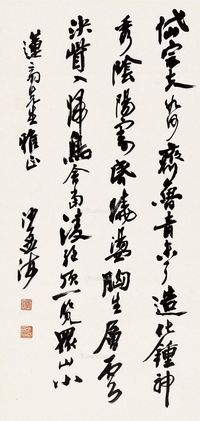 岱宗夫如何齊魯青未了造化鍾神
秀陰陽割昏曉盪胸生層雲
決眥入歸鳥會當凌絕頂一覽眾山小
蓮舫先生雅正
沙孟海